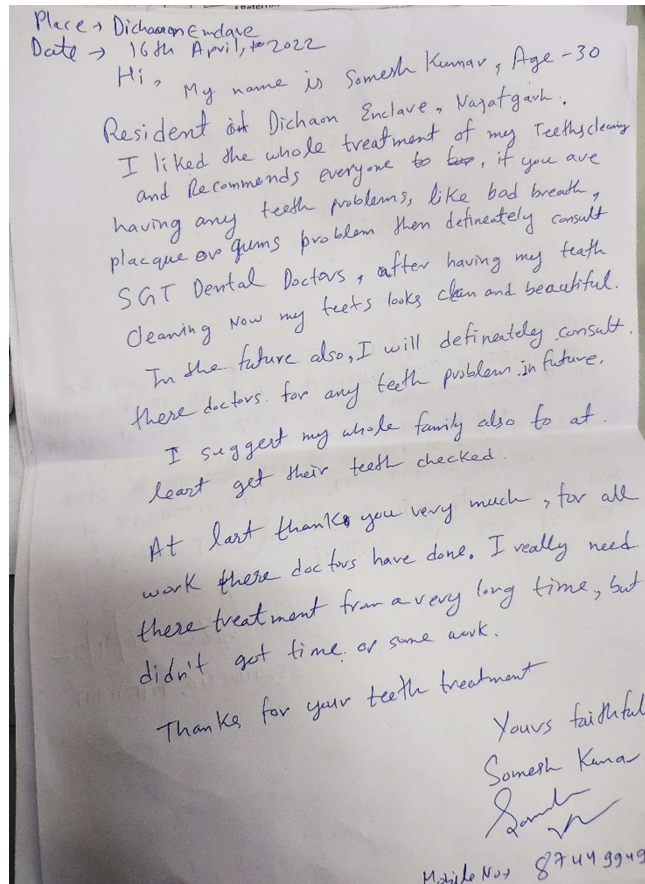 Place → Dichaon Enclave
Date → 16th April, 2022
Hi, My name is Somesh Kumar, Age - 30
Resident of Dichaon Enclave, Najafgarh.
I liked the whole treatment of my Teeths cleaing
and Recommends everyone, if you are
having any teeth problems, like bad breath,
placque or gums problem then defineately consult
SGT Dental Doctors, after having my teath
cleaning Now my teets looks clean and beautiful.
In the future also, I will defineately consult.
there doctors. for any teeth problem in future.
I suggest my whole family also to at.
least get their teeth checked.
At last thanks you very much, for all
work there doctors have done. I really need
there treatment from a very long time, but
didn't got time. or some work.
Thanks for your teeth treatment
Yours faithful
Somesh Kumar
Mobile No → 87449949